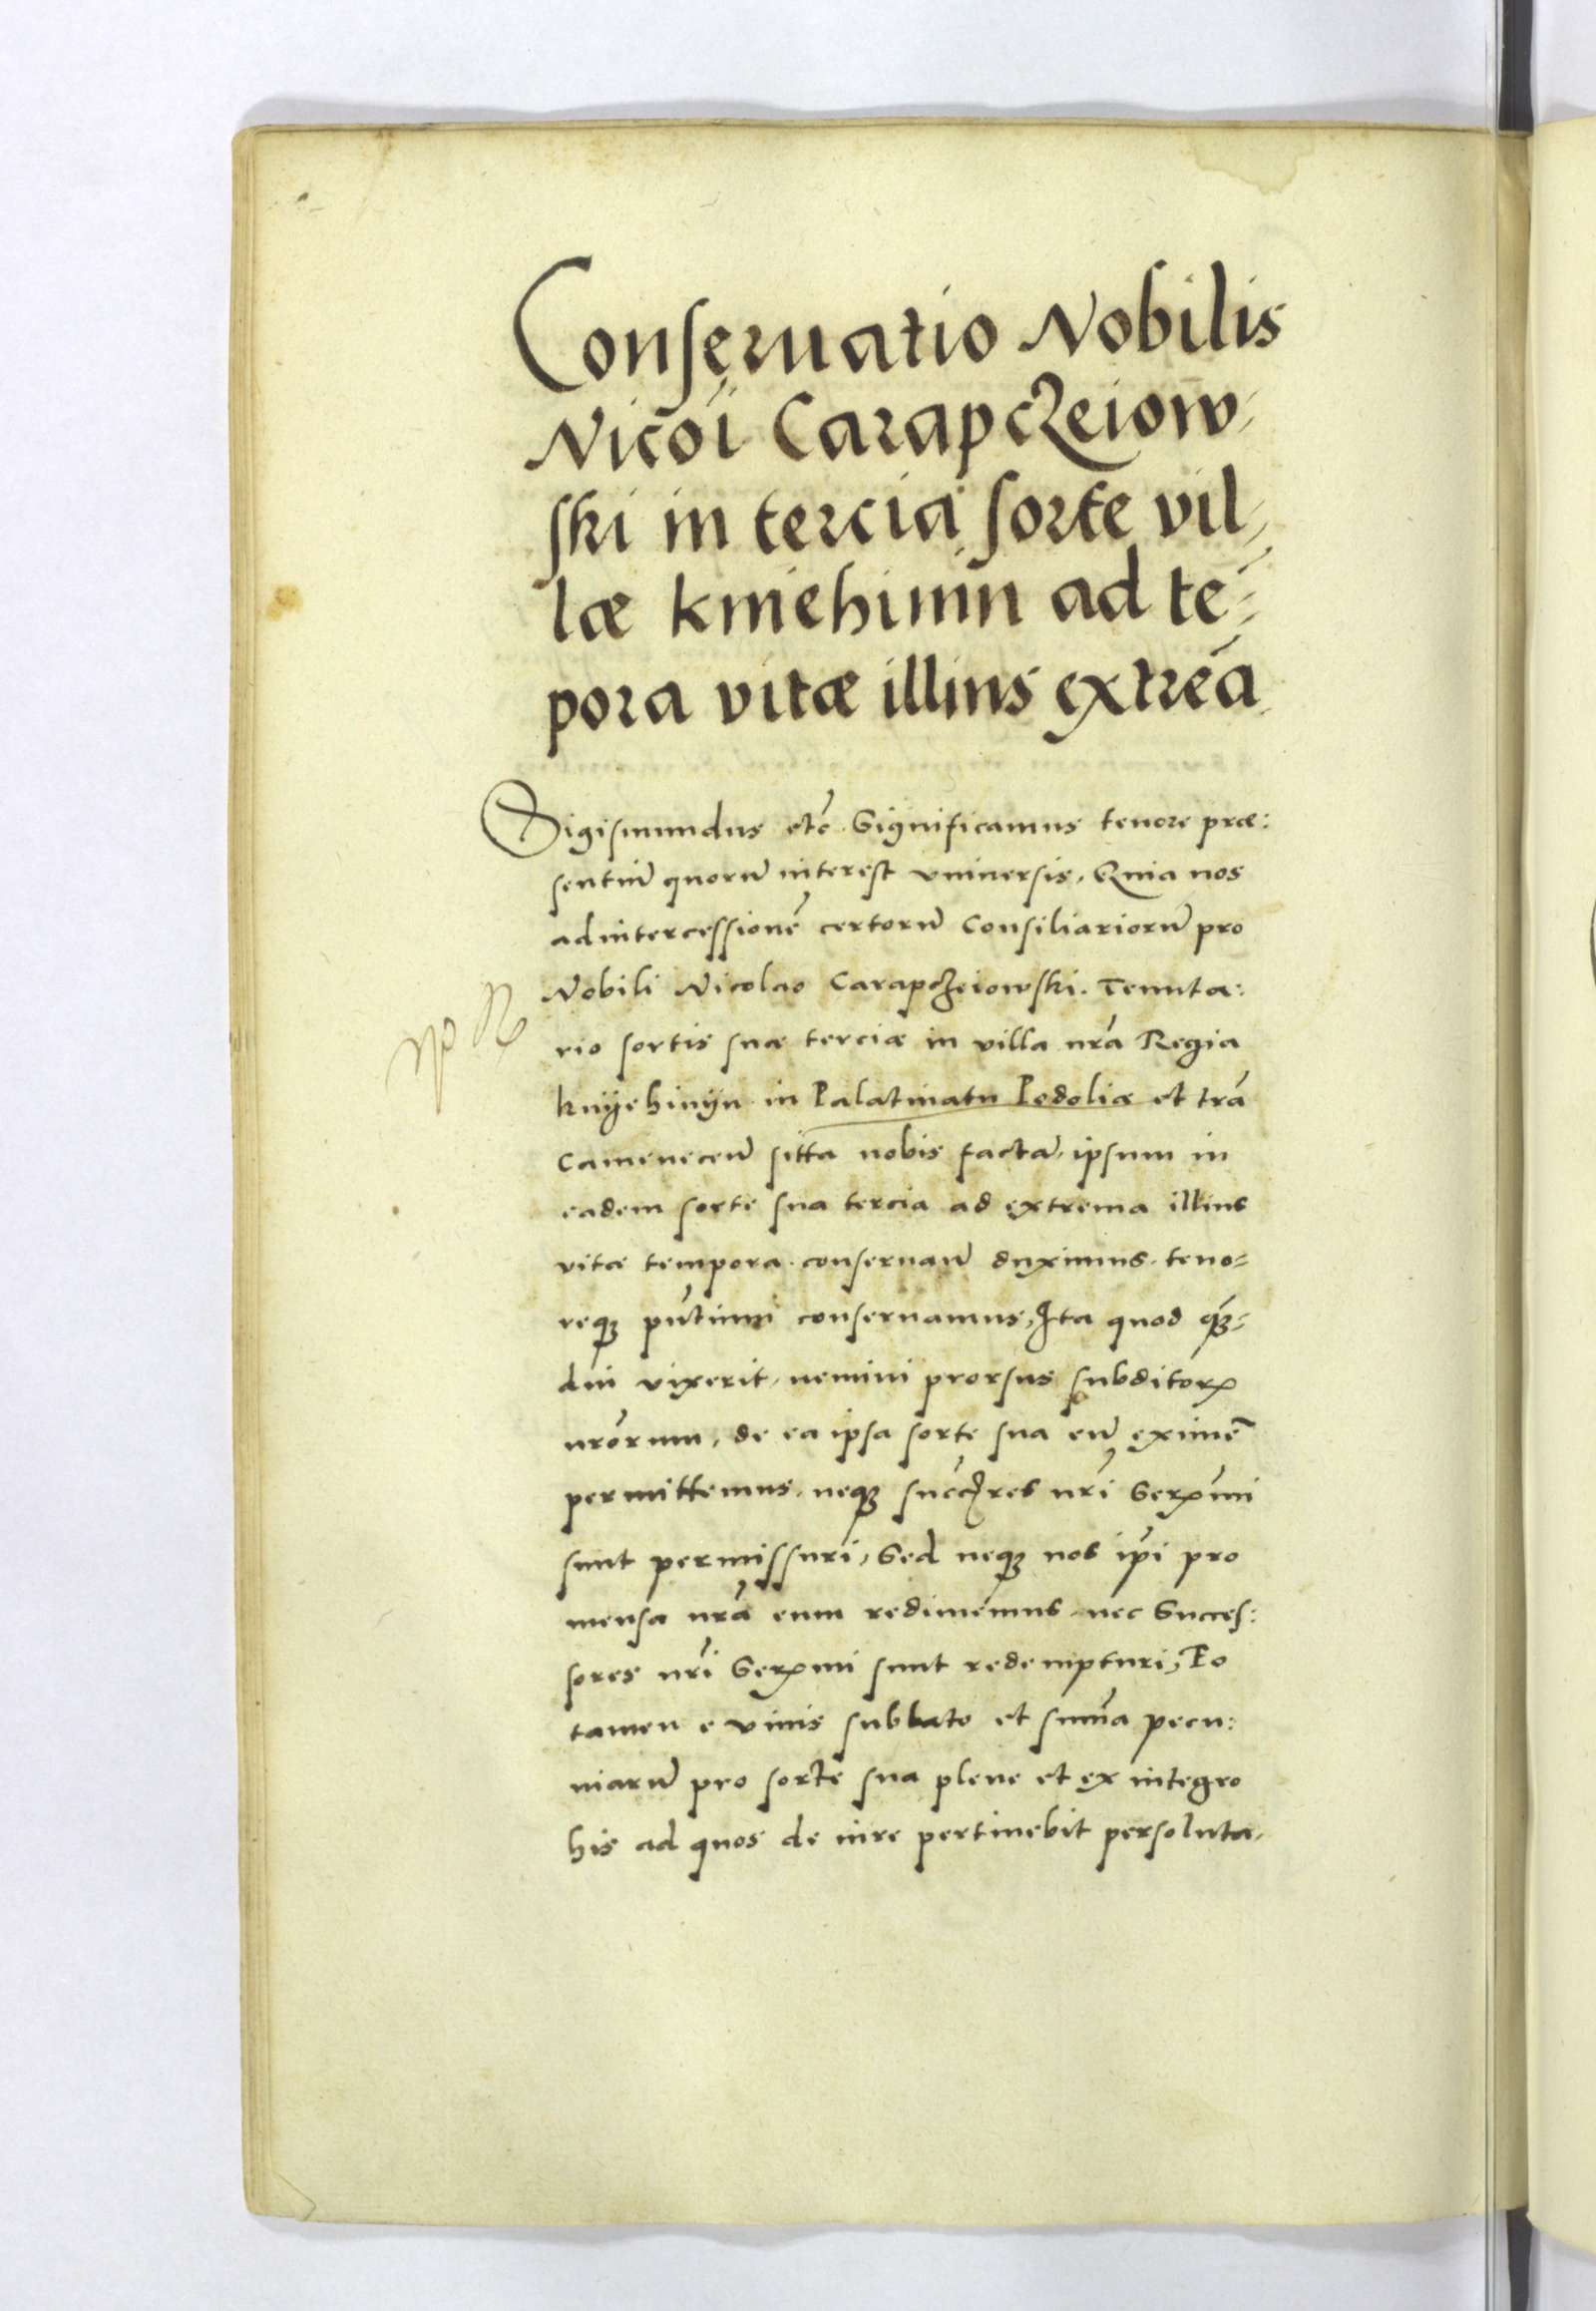 Conseruatio Nobilis
Nicõi Carapczeiow,
ski in tercia sorte vil,
læ kniehinin ad te-
pora vitæ illius extrẽa
Sigismundus etc̃ Significamus tenore præ:
sentiũ quorũ interest vniuersis, Quia nos
ad intercessionẽ certorũ Consiliariorũ pro
Nobili Nicolao Carapczeiowski. Tenuta:
rio sortis suæ terciæ in villa nr̃a Regia
knyehinyn in Palatinatu Podoliæ et tr̃a
Camenecen̄ sitta nobis factã, ipsum in
eadem sorte sua tercia ad extrema illius
vitæ tempora conseruan̄ duximus teno-
req3 pñtium conseruamus, Ita quod q̃3-
diu vixerit, nemini prorsus subditorꝝ
nrõrum, de ea ipsa sorte sua eũ eximẽ
permittemus, neq3 succ̃res nr̃i Serꝝmi
sunt permissuri, Sed neq3 nos ip̃i pro
mensa nr̃a eum redimemus nec Succes:
sores nr̃i Serꝝmi sunt redempturi, Eo
tamen e viuis sublato et sum̃a pecu:
niarũ pro sorte sua plene et ex integro
his ad quos de iure pertinebit persoluta,